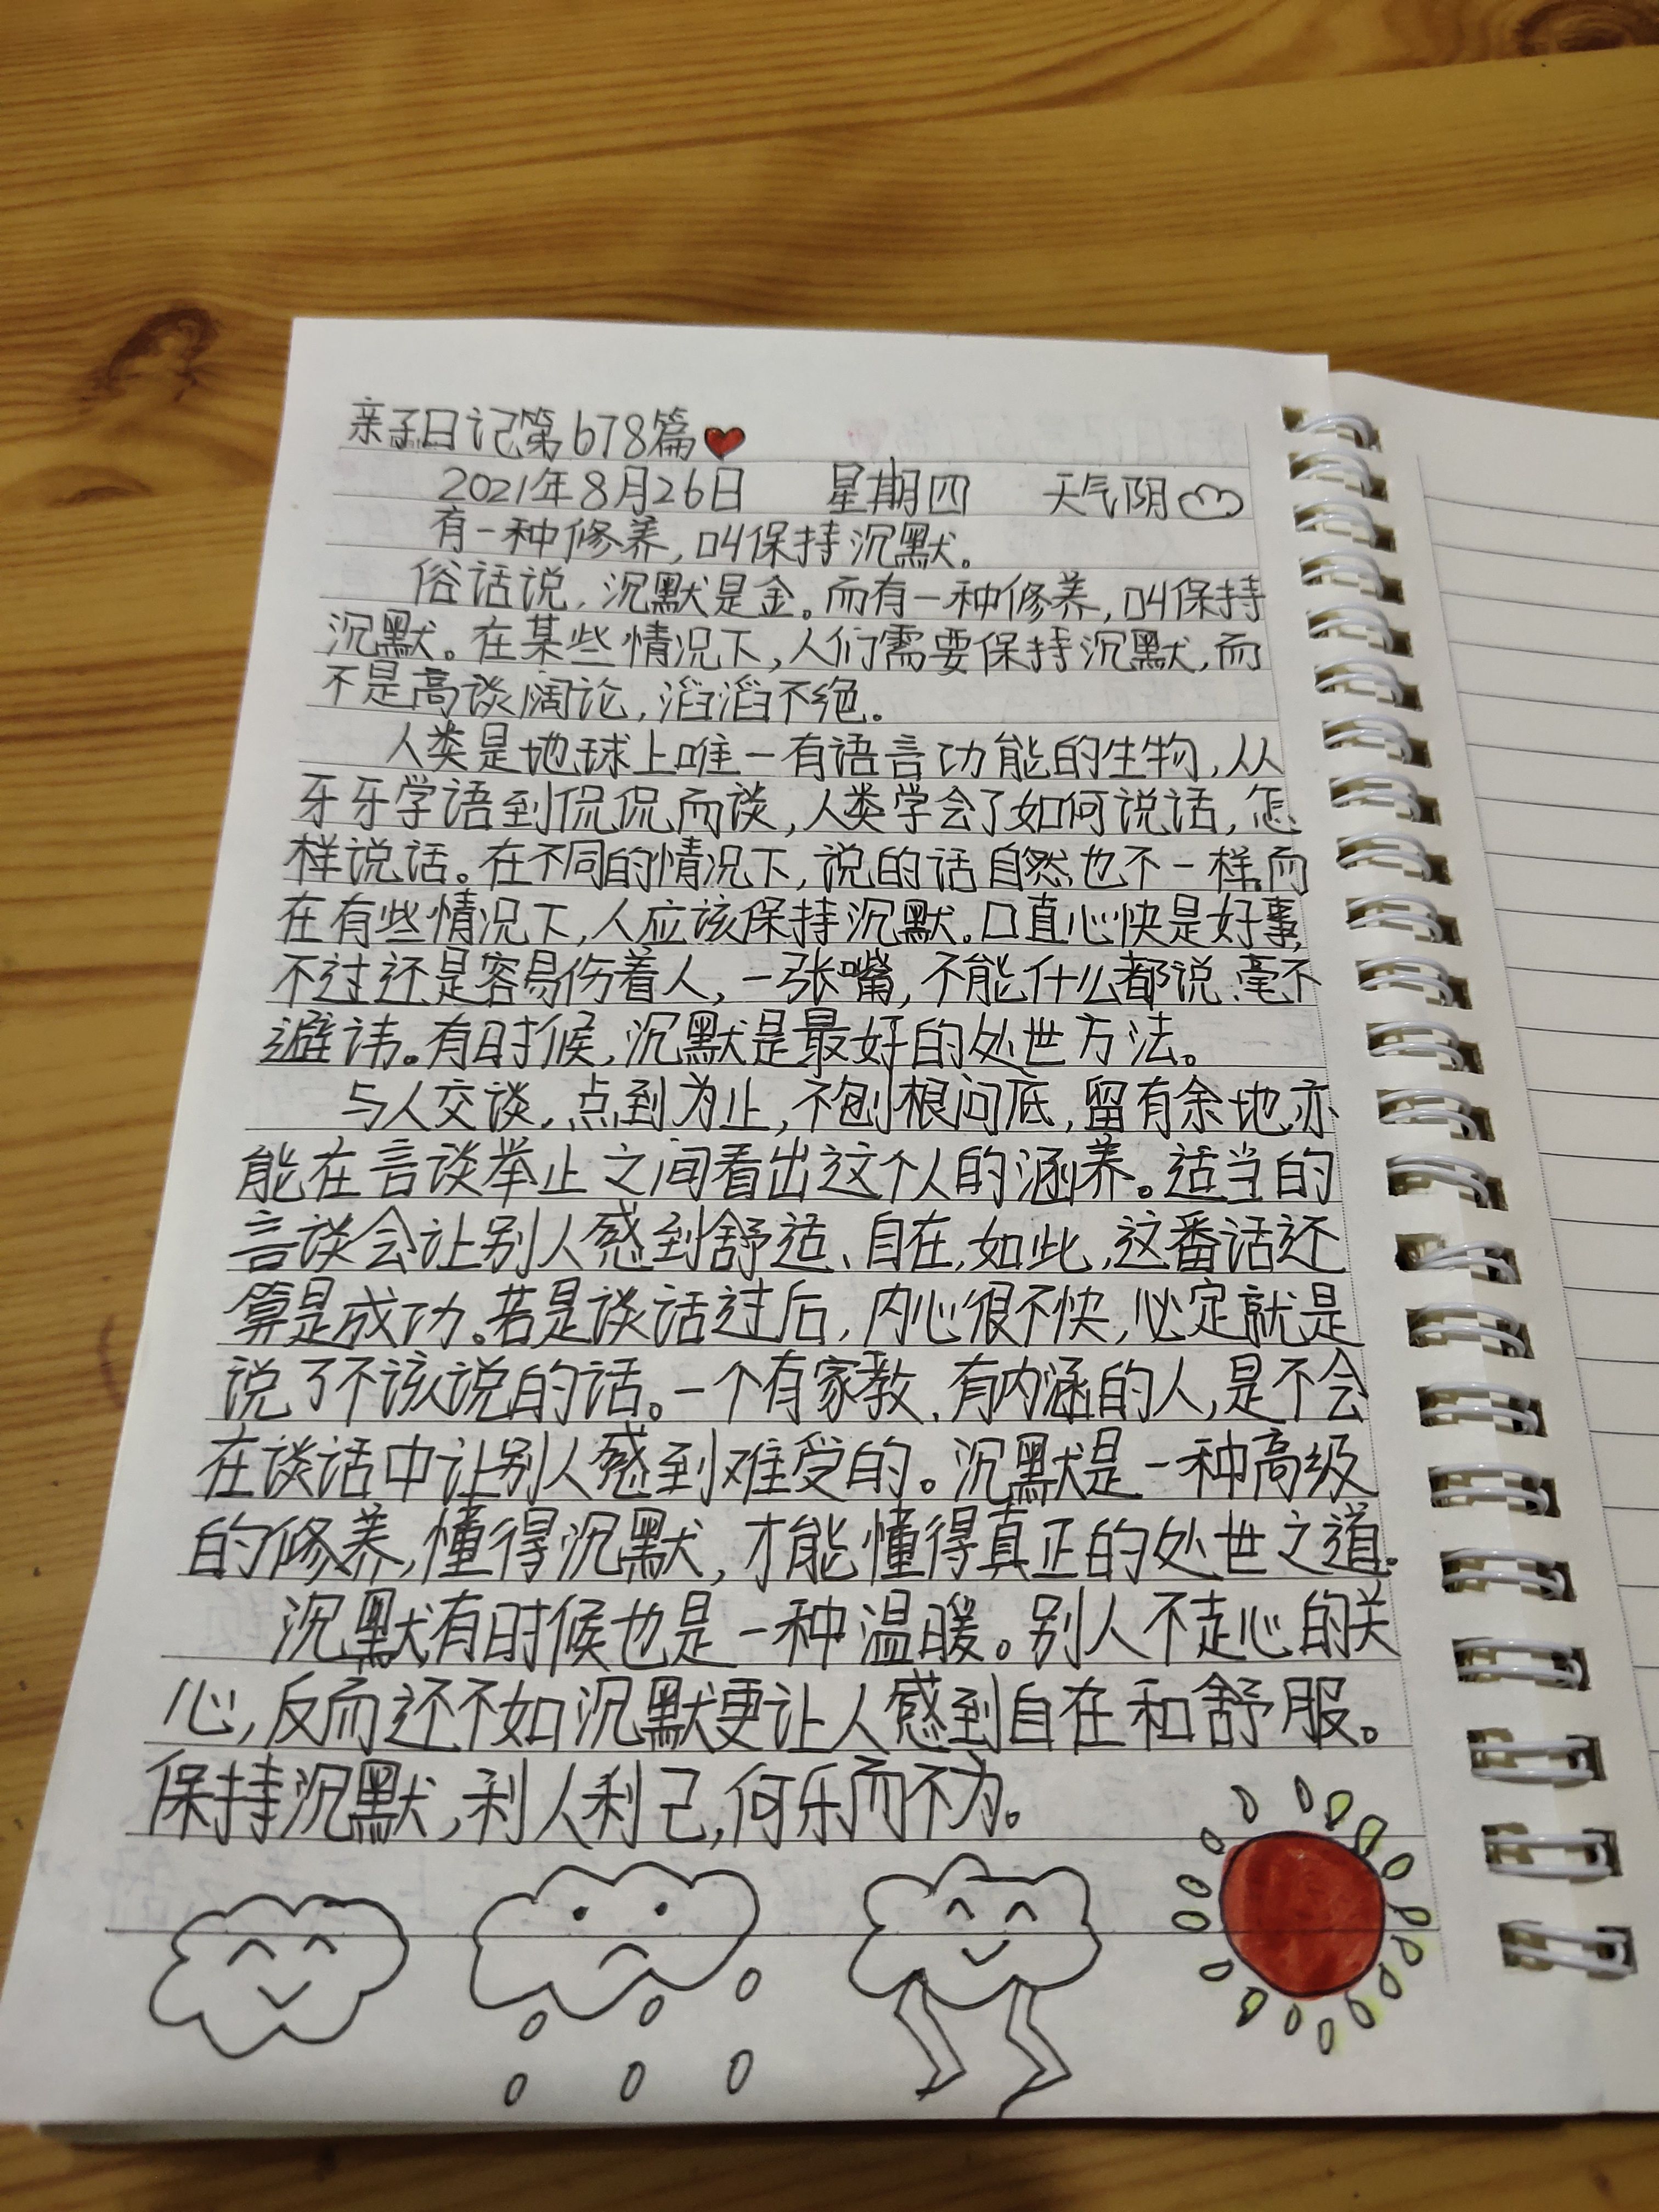 亲子日记第678篇
2021年8月26日 星期四 天气阴
有一种修养,叫保持沉默。
俗话说,沉默是金。而有一种修养,叫保持
沉默。在某些情况下,人们需要保持沉默,而
不是高谈阔论,滔滔不绝。
人类是地球上唯一有语言功能的生物,从
牙牙学语到侃侃而谈,人类学会了如何说话,怎
样说话。在不同的情况下,说的话自然也不一样,而
在有些情况下,人应该保持沉默。口直心快是好事,
不过还是容易伤着人,一张嘴,不能什么都说,毫不
避讳。有时候,沉默是最好的处世方法。
与人交谈,点到为止,不刨根问底,留有余地,亦
能在言谈举止之间看出这个人的涵养。适当的
言谈会让别人感到舒适、自在,如此,这番话还
算是成功。若是谈话过后,内心很不快,必定就是
说了不该说的话。一个有家教、有内涵的人,是不会
在谈话中让别人感到难受的。沉默是一种高级
的修养,懂得沉默,才能懂得真正的处世之道。
沉默有时候也是一种温暖。别人不走心的关
心,反而还不如沉默更让人感到自在和舒服。
保持沉默,利人利己,何乐而不为。